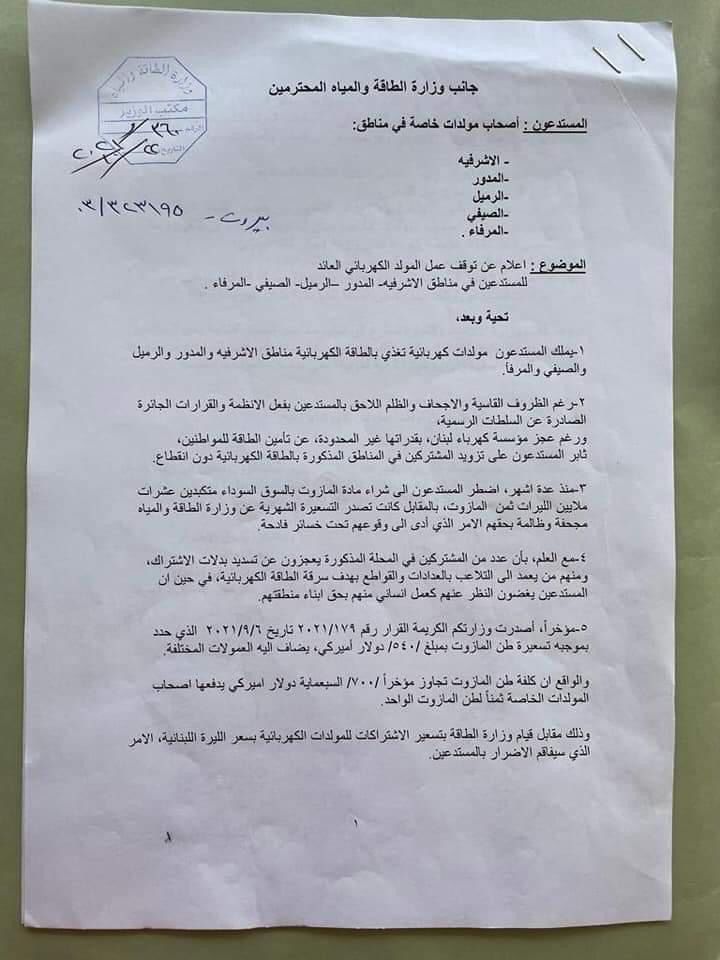 جانب وزارة الطاقة والمياه المحترمين
وزارة الطاقة والمياه
مكتب الوزير
الرقم
التاريخ
المستدعون : أصحاب مولدات خاصة في مناطق:
- الاشرفيه
-المدور
-الرميل
-الصيفي
-المرفاء .
بيروت - ٠٣/٣٢٣١٩٥
الموضوع : اعلام عن توقف عمل المولد الكهربائي العائد
للمستدعين في مناطق الاشرفيه- المدور –الرميل- الصيفي -المرفاء .
تحية وبعد،
١-يملك المستدعون مولدات كهربائية تغذي بالطاقة الكهربائية مناطق الاشرفيه والمدور والرميل
والصيفي والمرفأ.
٢-رغم الظروف القاسية والاجحاف والظلم اللاحق بالمستدعين بفعل الانظمة والقرارات الجائرة
الصادرة عن السلطات الرسمية،
ورغم عجز مؤسسة كهرباء لبنان، بقدراتها غير المحدودة، عن تأمين الطاقة للمواطنين،
ثابر المستدعون على تزويد المشتركين في المناطق المذكورة بالطاقة الكهربائية دون انقطاع.
٣-منذ عدة اشهر، اضطر المستدعون الى شراء مادة المازوت بالسوق السوداء متكبدين عشرات
ملايين الليرات ثمن المازوت، بالمقابل كانت تصدر التسعيرة الشهرية عن وزارة الطاقة والمياه
مجحفة وظالمة بحقهم الامر الذي أدى الى وقوعهم تحت خسائر فادحة.
٤-مع العلم، بأن عدد من المشتركين في المحلة المذكورة يعجزون عن تسديد بدلات الاشتراك،
ومنهم من يعمد الى التلاعب بالعدادات والقواطع بهدف سرقة الطاقة الكهربائية، في حين ان
المستدعين يغضون النظر عنهم كعمل انساني منهم بحق ابناء منطقتهم.
٥-مؤخراً، أصدرت وزارتكم الكريمة القرار رقم ٢٠٢١/١٧٩ تاريخ ٢٠٢١/٩/٦ الذي حدد
بموجبه تسعيرة طن المازوت بمبلغ /٥٤٠/ دولار أميركي، يضاف اليه العمولات المختلفة.
والواقع ان كلفة طن المازوت تجاوز مؤخراً /٧٠٠/ السبعماية دولار اميركي يدفعها اصحاب
المولدات الخاصة ثمناً لطن المازوت الواحد.
وذلك مقابل قيام وزارة الطاقة بتسعير الاشتراكات للمولدات الكهربائية بسعر الليرة اللبنانية، الامر
الذي سيفاقم الاضرار بالمستدعين.
١